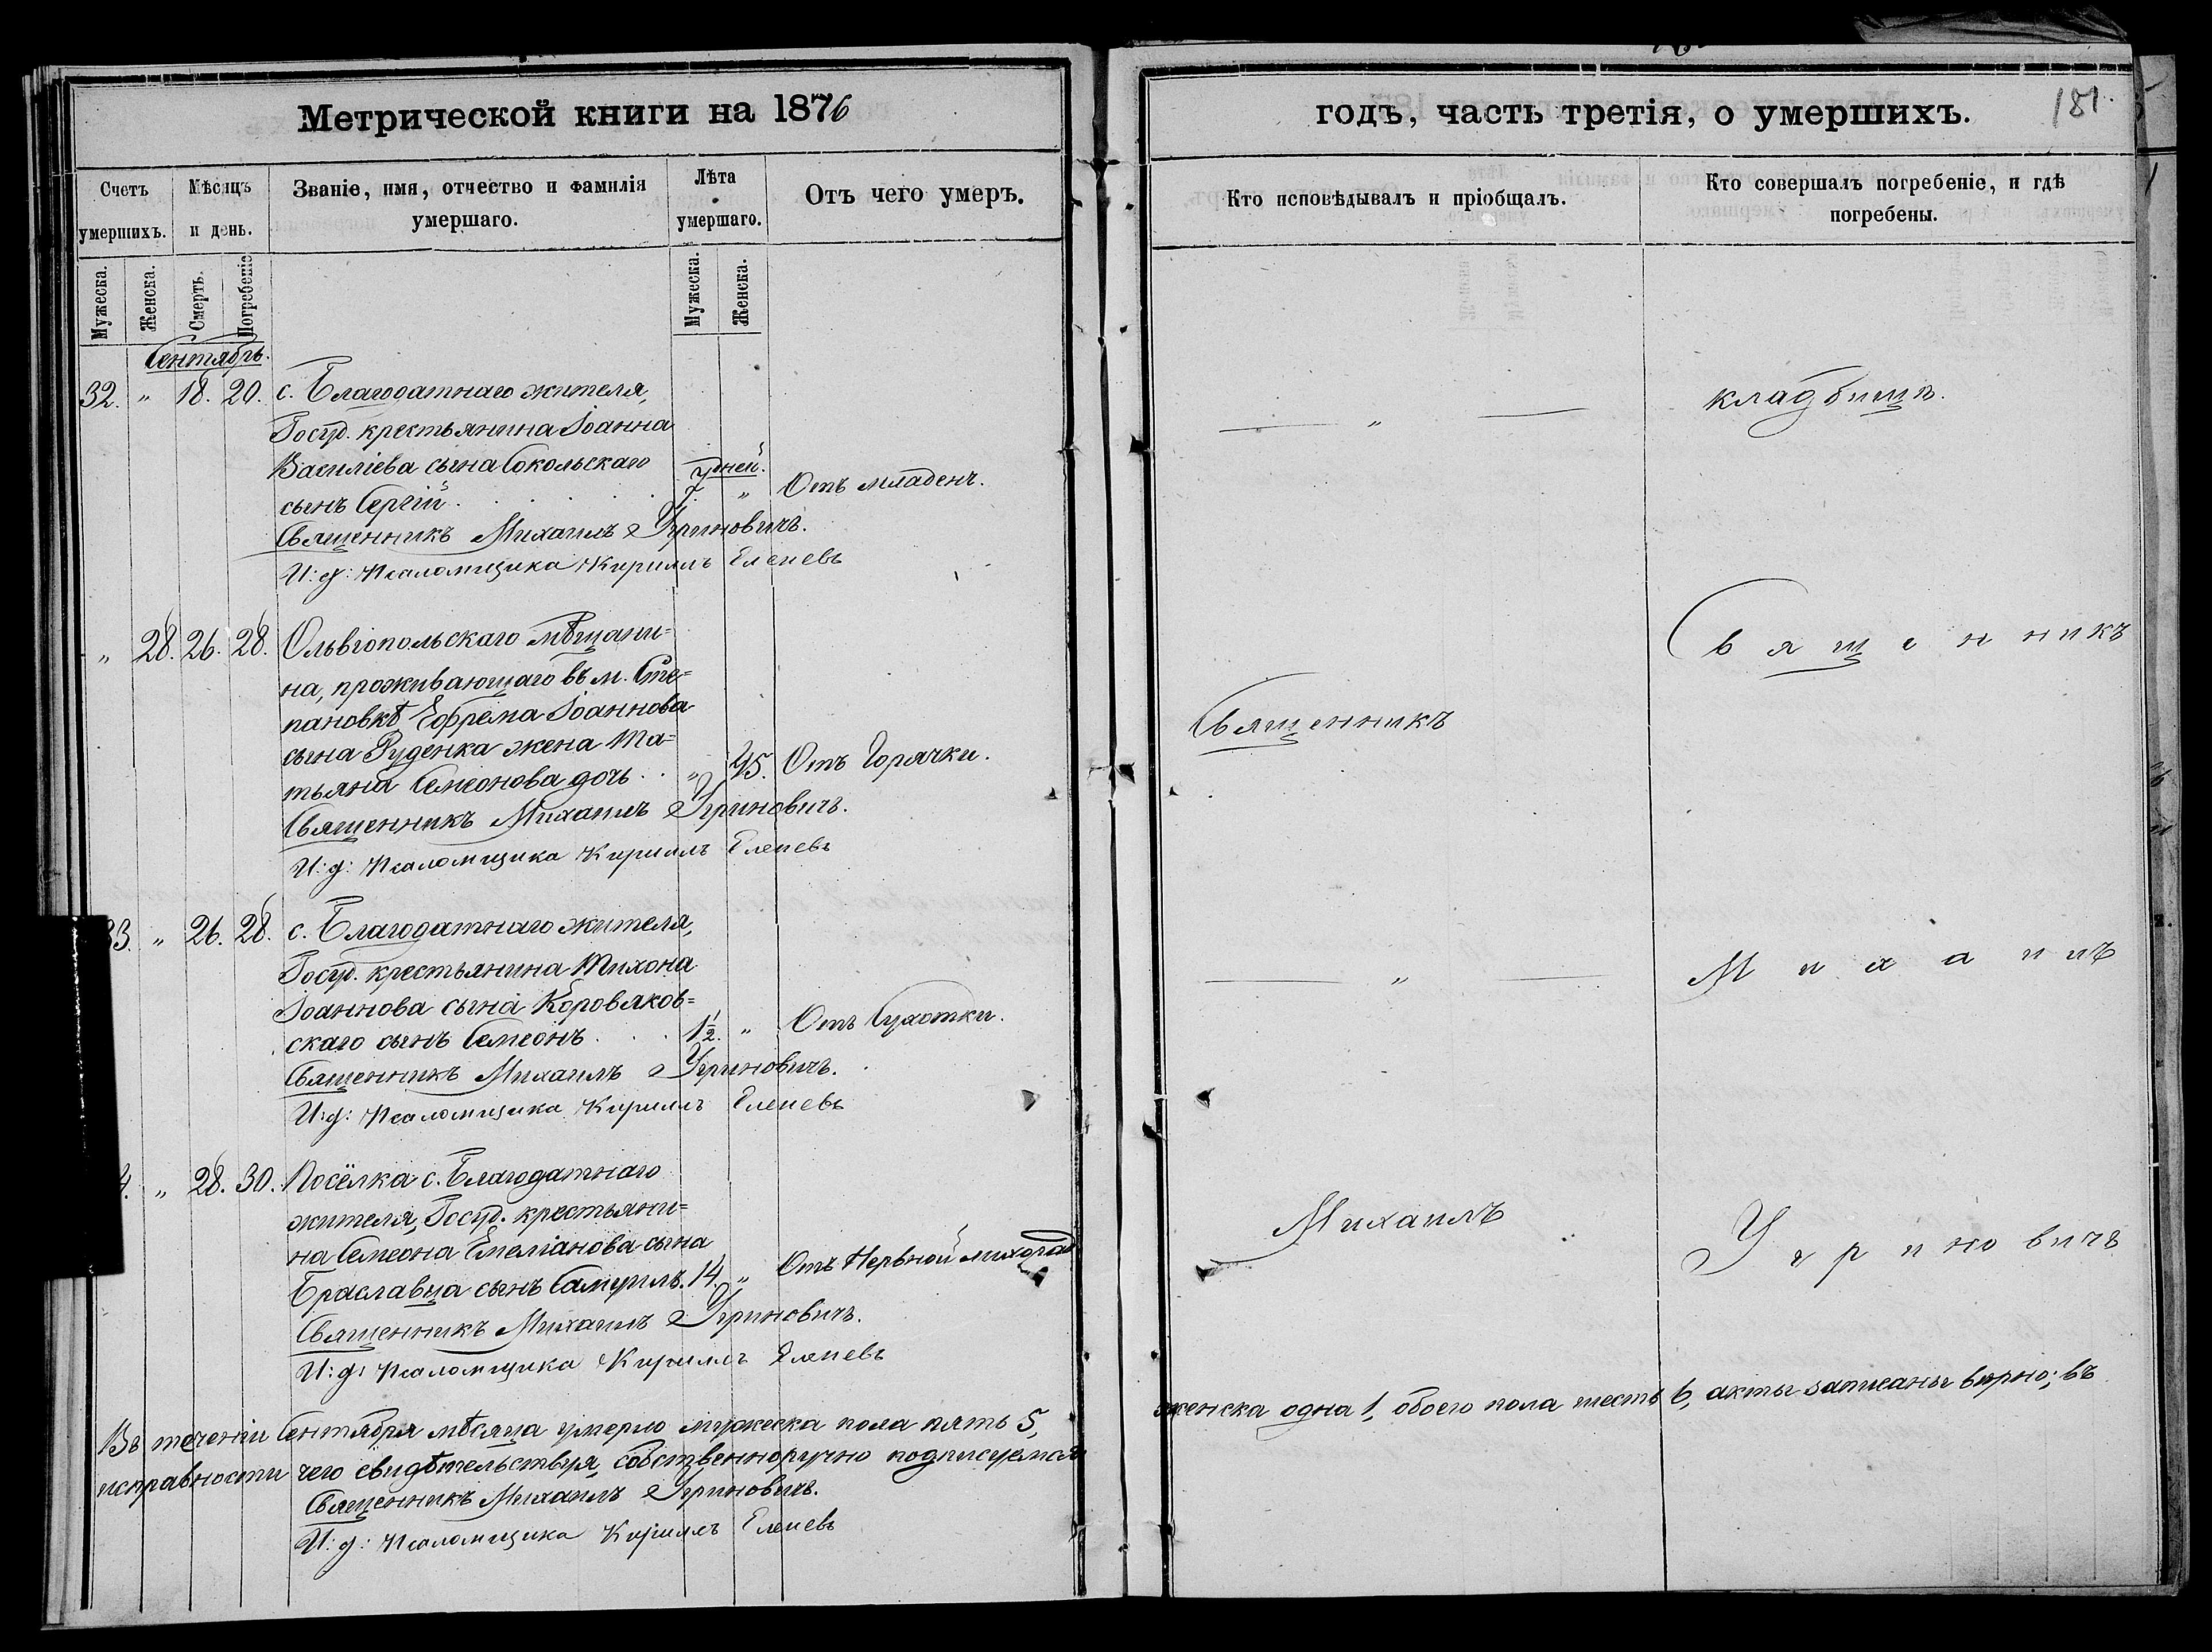 Метрической книги на 1876
Счетъ умершихъ.
Мѣсяцъ и день.
Званіе, имя, отчество и фамилія умершаго.
Лѣта умершаго.
Отъ чего умеръ.
Мужеска.
Женска.
Смерть.
Погребеніе
Мужеска.
Женска.
Сентябрь.
32. " 18. 20. с. Благодатнаго жителя,
Госуд. крестьянина Іоанна
Василіева сына Сокольскаго
дней.
сынъ Сергій . . . . 7. " Отъ младенч.
Священникъ Михаилъ Угриновичъ.
И: д: Псаломщика Кириллъ
" 28. 26. 28. Ольвіопольскаго мѣщани=
на, проживающаго въ м. Сте=
пановкѣ Ефрема Іоаннова
сына Руденка жена Та=
тьяна Семеонова дочь . . " 45. Отъ Горячки.
Священникъ Михаилъ Угриновичъ.
И: д: Псаломщика Кириллъ
33. " 26. 28. с. Благодатнаго жителя,
Госуд. крестьянина Тихона
Іоаннова сына Коровяков=
скаго сынъ Семеонъ . . . 1½. " Отъ Сухотки.
Священникъ Михаилъ Угриновичъ.
И: д: Псаломщика Кириллъ
4. " 28. 30. Посёлка с. Благодатнаго
жителя, Госуд. крестьяни=
на Семеона Емеліанова сына
Браславца сынъ Самуилъ. 14. " Отъ Нервной лихорад
Священникъ Михаилъ Угриновичъ.
И: д: Псаломщика Кириллъ
Въ теченіи Сентября мѣсяца умерло мужеска пола пять 5,
исправности чего свидѣтельствуя, собственноручно подписуемся
Священникъ Михаилъ Угриновичъ.
И: д: Псаломщика Кириллъ
годъ, часть третія, о умершихъ.
181.
Кто исповѣдывалъ и пріобщалъ.
Кто совершалъ погребеніе, и гдѣ погребены.
" кладбищѣ.
Священникъ
Священникъ
" Михаилъ
Михаилъ
Угриновичъ
женска одна 1, обоего пола шесть 6, акты записаны вѣрно; въ